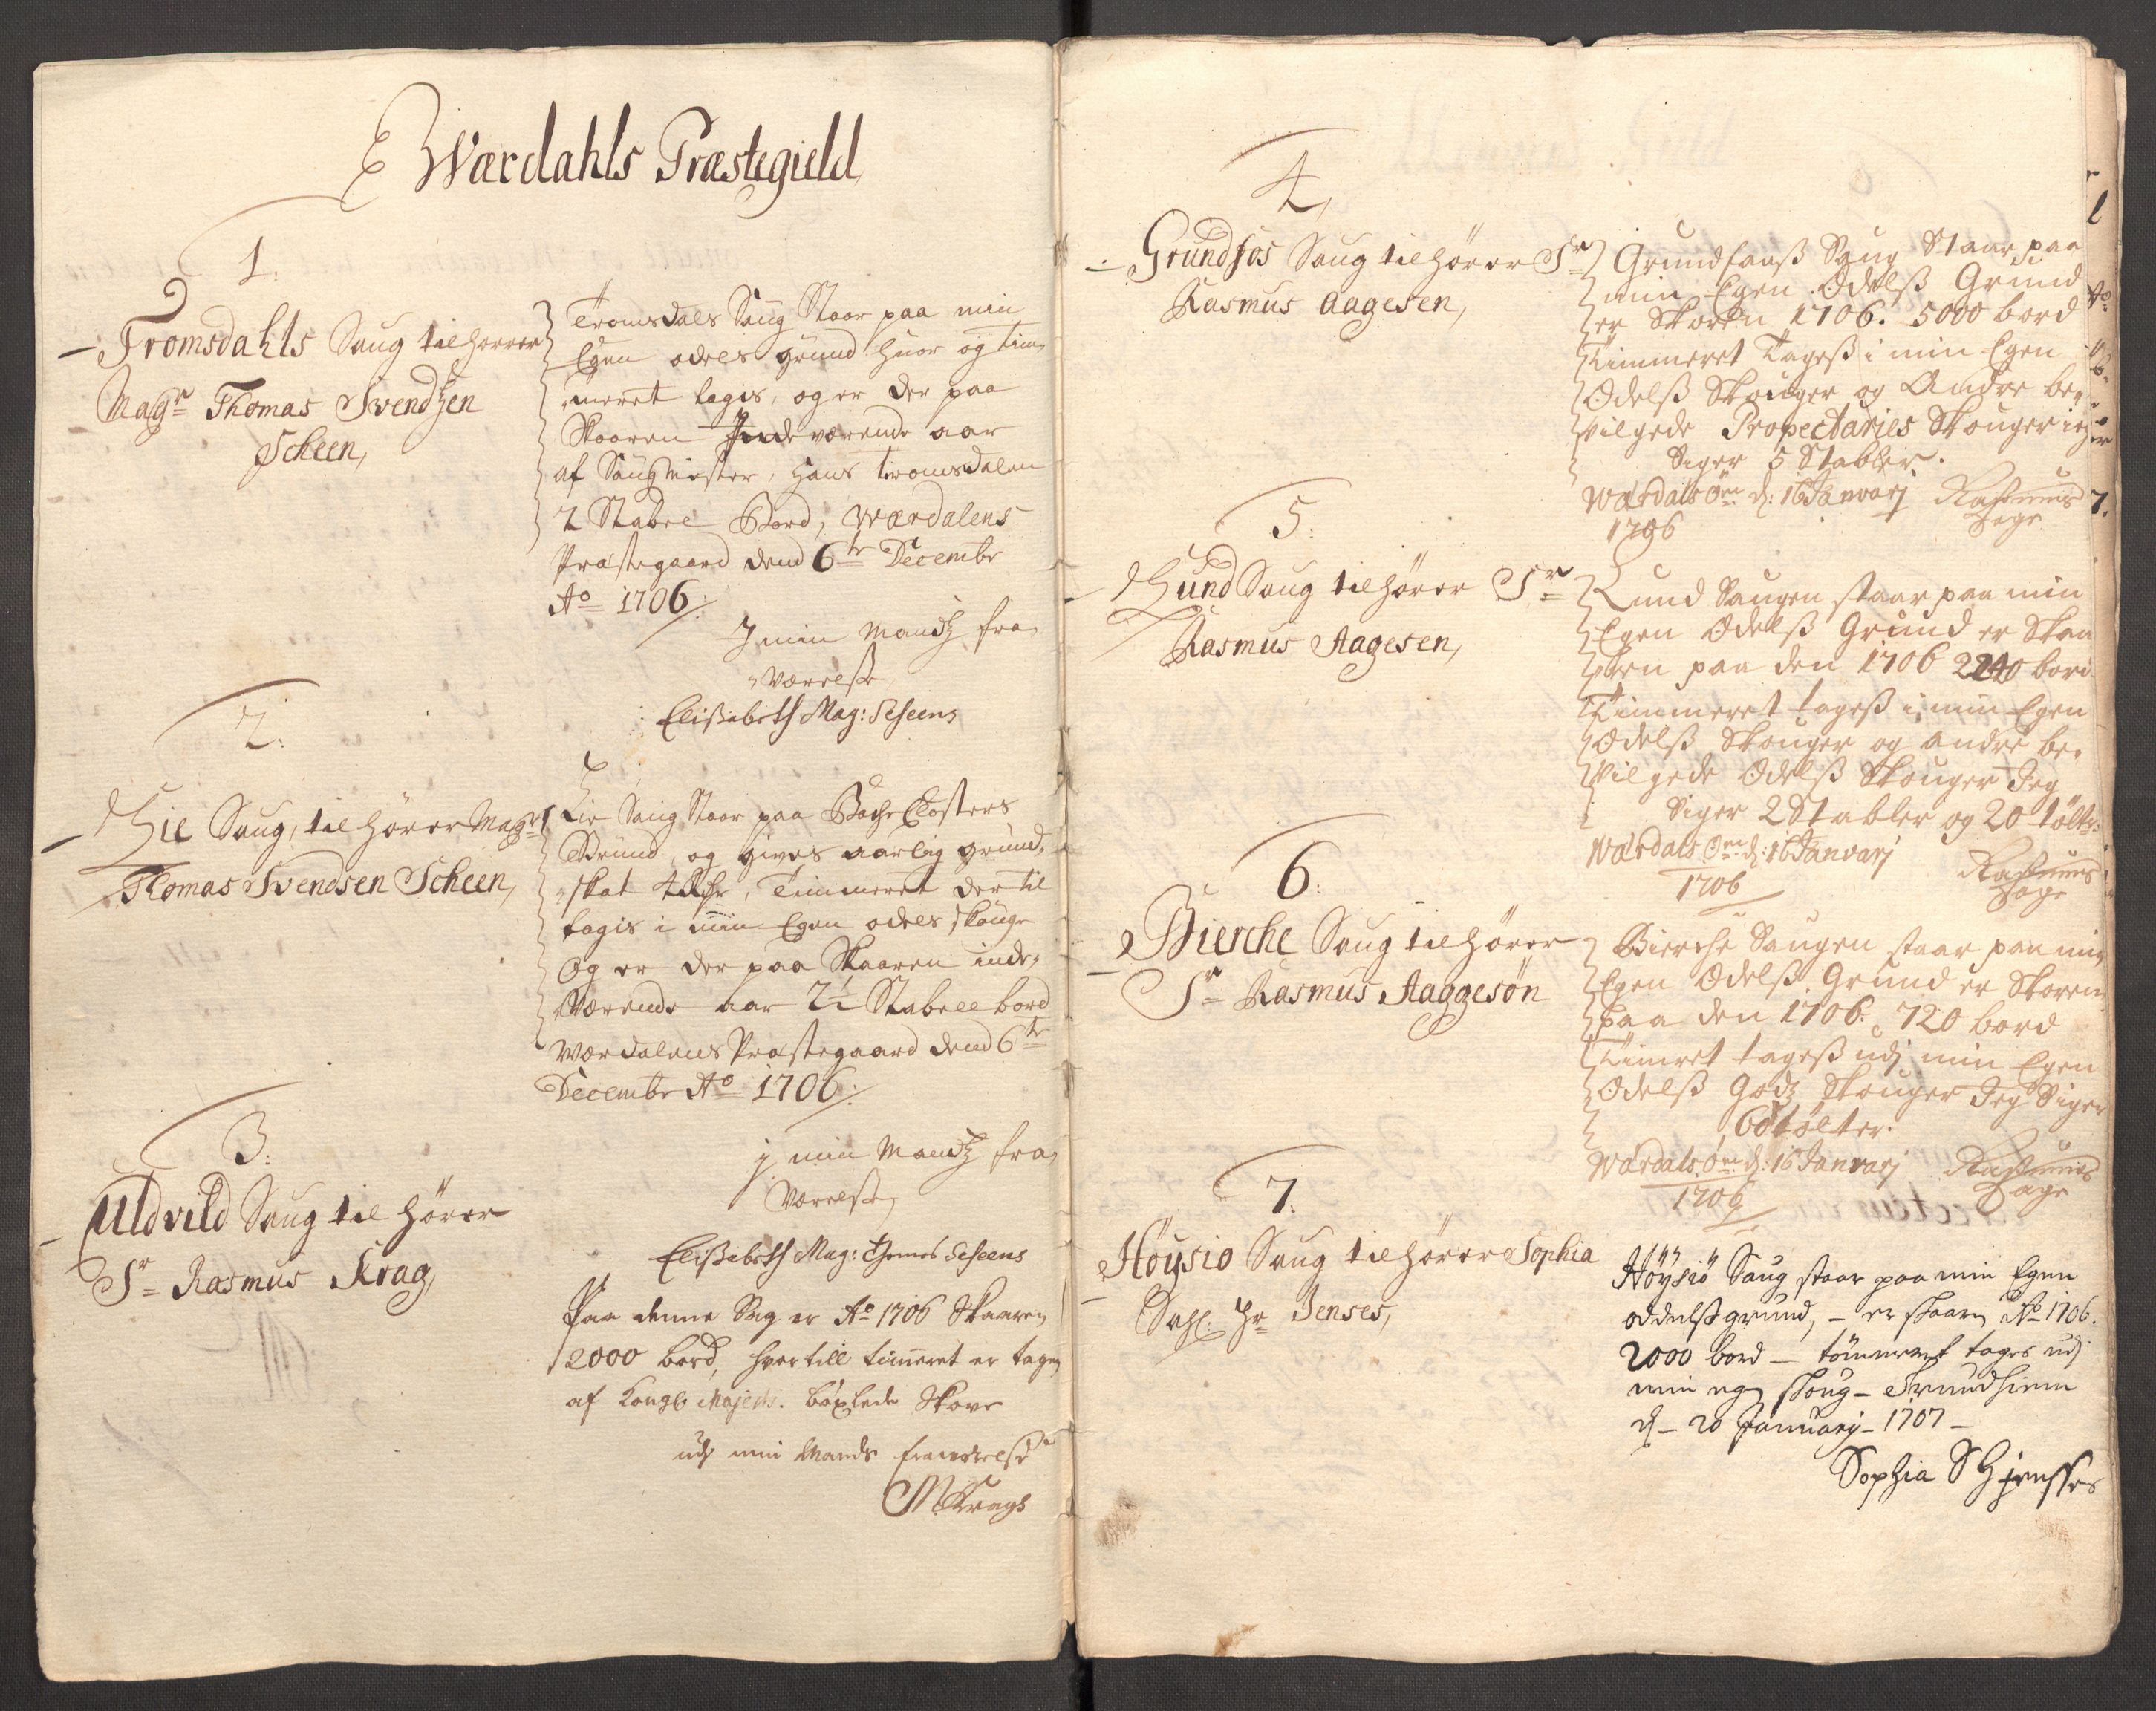 Wærdahls Præstegield
1.
Tromsdahls Saug tilhører
Magr Thomas Svendzen
Scheen,
Tromsdals Saug Staar paa min
Egen odels grund huor og tim-
meret tagis, og er der paa
Skaaren Indeværende aar
af Saugmester, Hans tromsdalen
2 Stabel Bord, Wærdalens
Præstegaard dend 6te Decembr
Ao 1706.
J min Mandz fra-
værelse
Elissabeth Mag: Scheens
2.
Lie Saug, tilhører Magr
Thomas Svendsen Scheen,
Lie Saug Staar paa Closters
Grund, og gives aarlig grund-
skat Timmeret der til
tagis i min Egen odels skouge
Og er der paa Skaaren inde-
værende aar 2½ Stabell bord
Wærdalens Præstegaard dend 6te
Decembr Ao 1706.
j min Mandz fra-
værelse
Elissabeth Mag: Thomes Scheens
3.
Uldvild Saug tilhører
Sr Rasmus Krag,
Paa denne Sag er Ao 1706 Skaaren
2000 bord, hvortill timeret er tagen
af Kongl Majests. böxlede Skove
udj min Mands fraværelse
M Krags
4.
Grundfos Saug tilhører Sr
Rasmus Aagesen,
Grundfouss Saug Staar paa
min Egen Odelss Grund
er Skoren 1706. 5000 bord
Timmeret Tagess i min Egen
Odelss Skouger og Andre be-
vilgede Propectaries Skouger ieg
Siger 5 Stabler.
Wardalsörn d: 16 Januarj
1706
Rasmus
Hage
5.
Lund Saug tilhører Sr
Rasmus Aagesen,
Lund Saugen staar paa min
Egen Odelss Grund er Skaa
ren paa den 1706 2240 bord
Timmeret tagess i min Egen
Odelss Skouger og andre be-
vilgede Odelss Skouger Jeg
Siger 2 Stabler og 20 tölter
Wardalsörn d: 16 Januarj
1706
Rasmus
Hage
6.
Bierche Saug tilhører
Sr Rasmus Aaggesön
Bierche Saugen staar paa min
Egen Odelss Grund er Skoren
paa den 1706. 720 bord
Timret tagess udj min Egen
Odelss Godz Skouger Jeg Siger
60 tölter.
Wardalsörn d: 16 Januarj
1706
Rasmus
Hage
7.
Höysio Saug tilhører Sophia
Sahl: Hr Jenses,
Höysiö Saug staar paa min Egen
oddelss grund, - er skaaren Ao 1706.
2000 bord - tömmeret tages udj
min egen skoug - Trundhiem
d - 20 Januarij - 1707 -
Sophia S H jensses